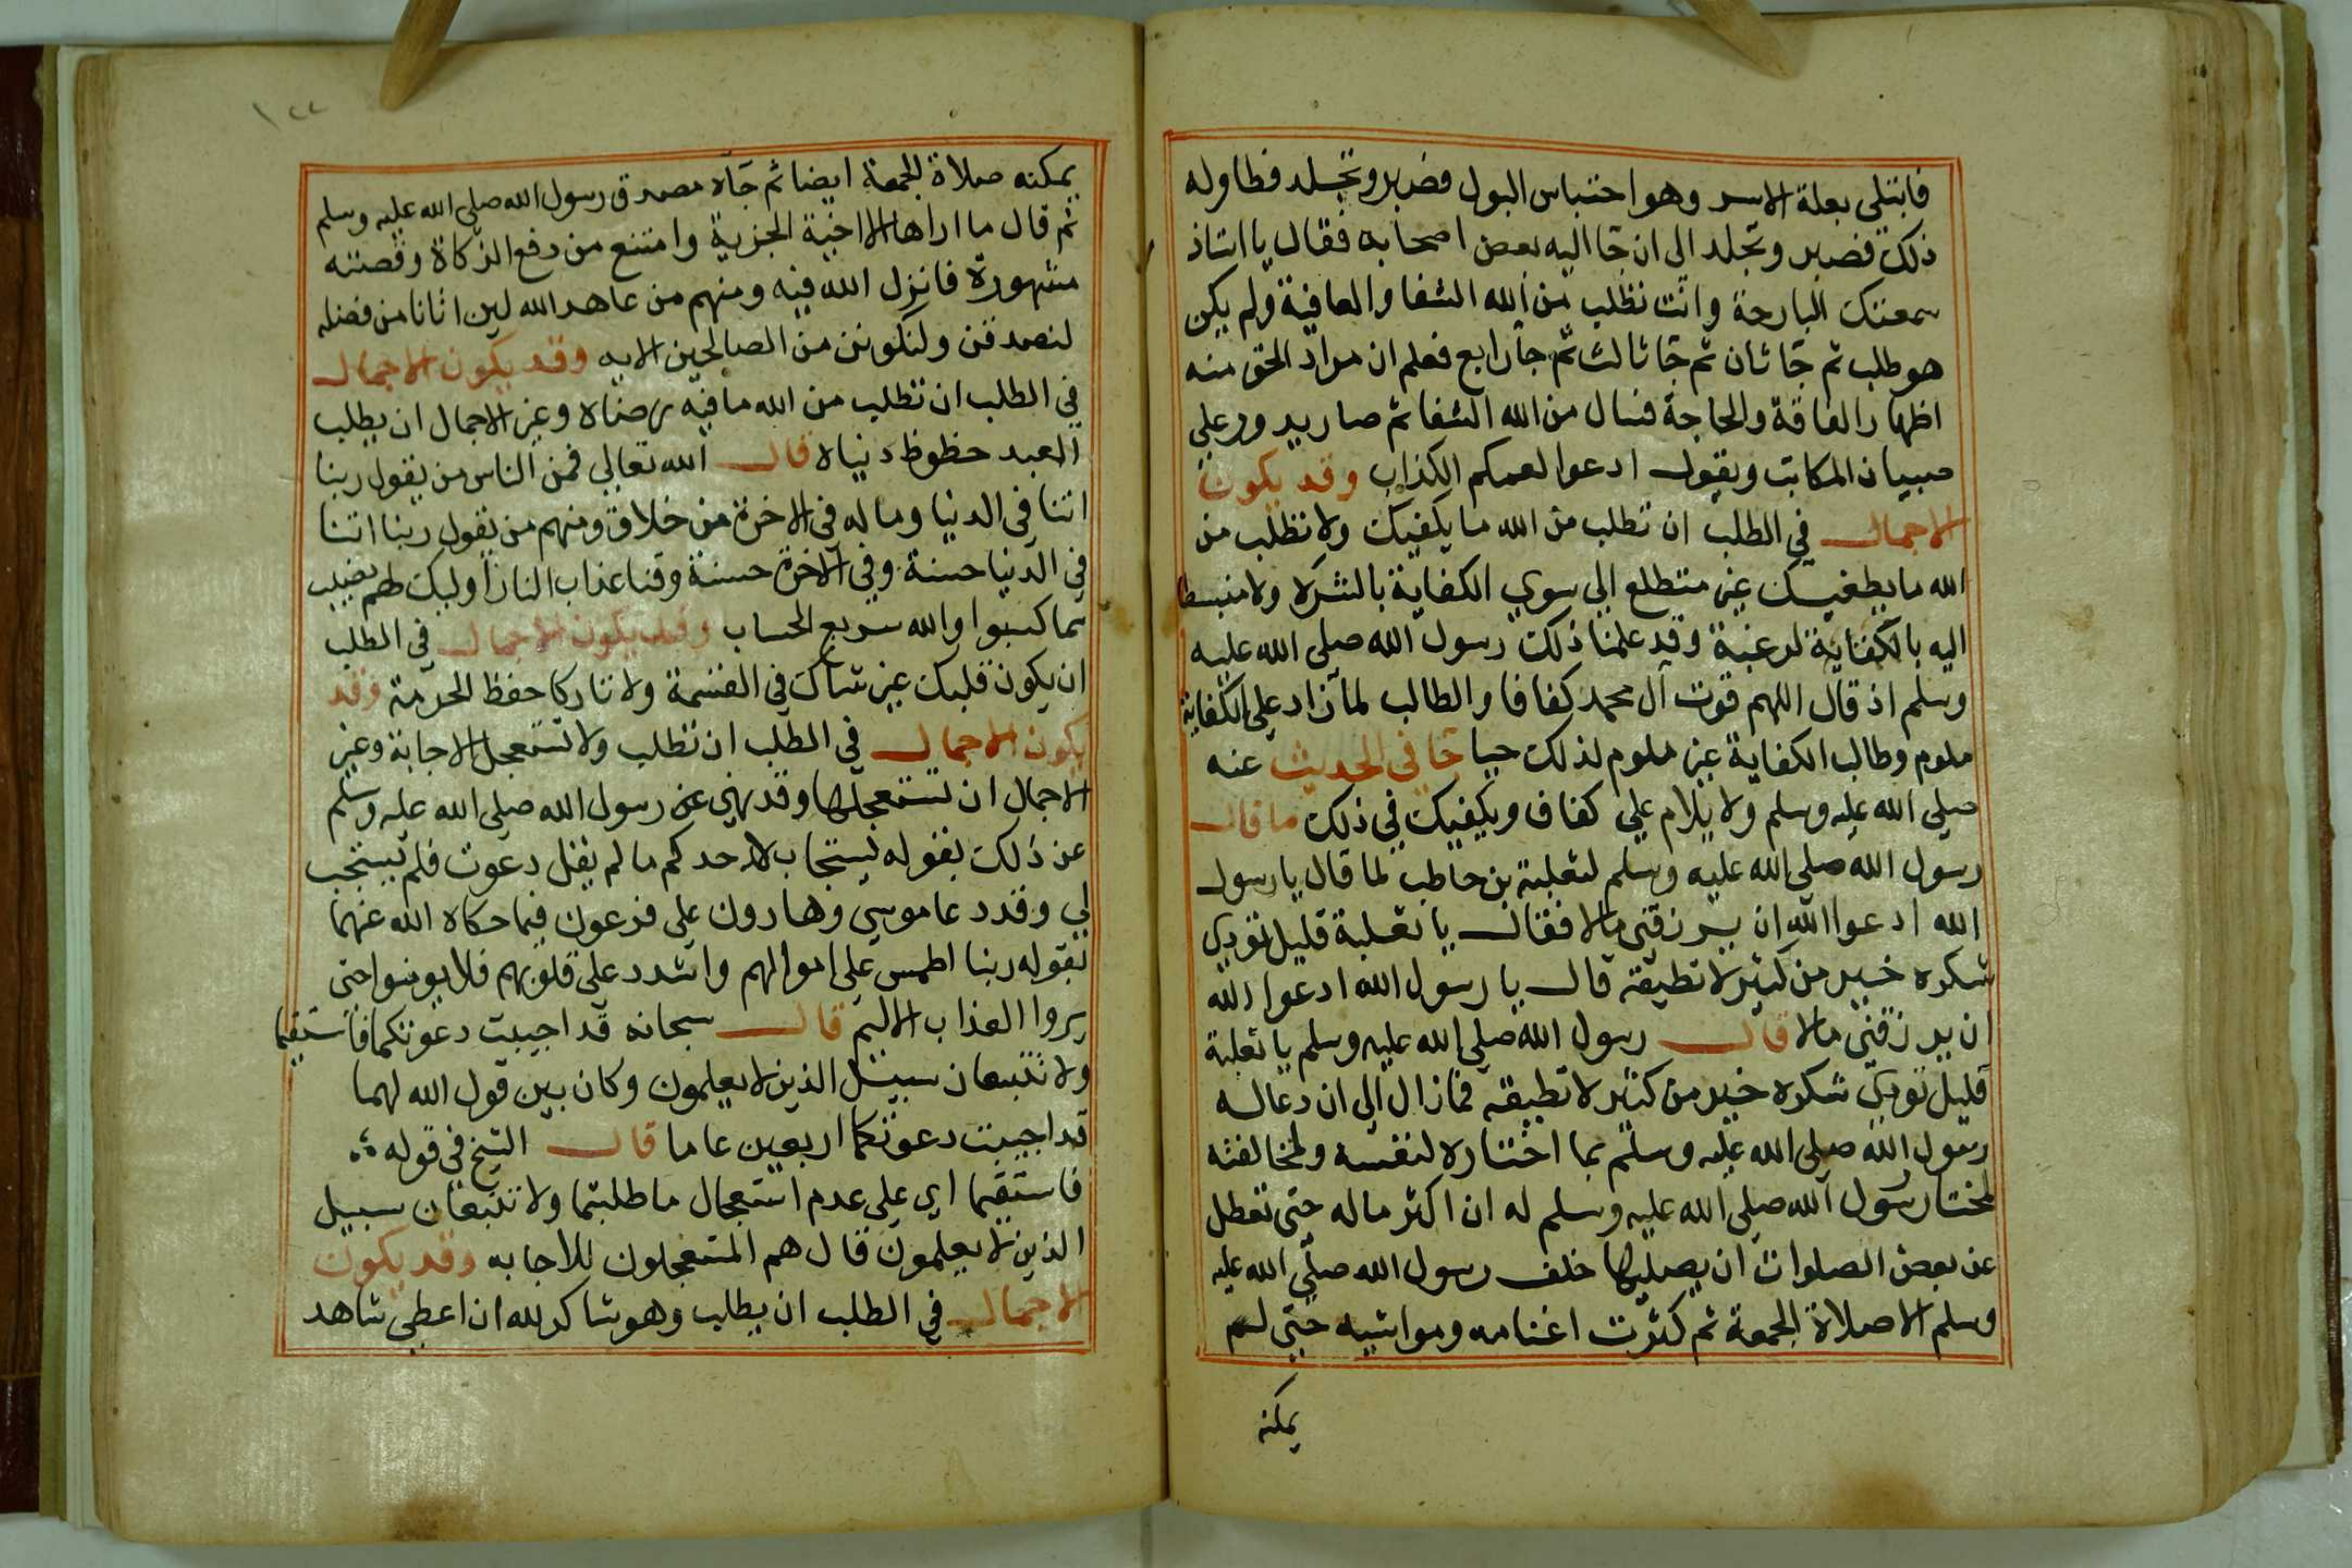 فابتلي بعلة الاسر وهو احتباس البول فصبر وتجلد فطاوله
ذلك فصبر وتجلد الى ان جا اليه بعض اصحابه فقال يا استاذ
سمعتك البارحة وانت تطلب من الله الشفا والعافية ولم يكن
هو طلب ثم جا ثان ثم جا ثالث ثم جا رابع فعلم ان مراد الحق منه
اظهار الفاقة والحاجة فسال من الله الشفا ثم صار يدور علي
صبيان المكاتب ويقول ادعوا لعمكم الكذاب وقد يكون
الاجمال في الطلب ان تطلب من الله ما يكفيك ولا تطلب من
الله ما يطغيك غير متطلع الي سوي الكفاية بالشره ولا منبسطا
اليه بالكفاية لرغبة وقد علمنا ذلك رسول الله صلى الله عليه
وسلم اذ قال اللهم قوت آل محمد كفافا والطالب لما زاد على الكفاية
ملوم وطالب الكفاية غير ملوم لذلك جا في الحديث عنه
صلي الله عليه وسلم ولا يلام علي كفاف ويكفيك في ذلك ما قال
رسول الله صلي الله عليه وسلم لثعلبة بن حاطب لما قال يا رسول
الله ادعوا الله ان يرزقني مالا فقال يا ثعلبة قليل تودي
شكره خير من كثير لا تطيقه قال يا رسول الله ادعوا الله
ان يرزقني مالا قال رسول الله صلي الله عليه وسلم يا ثعلبة
قليل تودي شكره خير من كثير لا تطيقه فما زال الي ان دعا له
رسول الله صلي الله عليه وسلم بما اختاره لنفسه ولمخالفته
لمختار رسول الله صلي الله عليه وسلم له ان اكثر ماله حتي تعطل
عن بعض الصلوات ان يصليها خلف رسول الله صلي الله عليه
وسلم الا صلاة الجمعة ثم كثرت اغنامه ومواشيه حتي لم
يمكنه
١٢٢
يمكنه صلاة الجمعة ايضا ثم جاه مصدق رسول الله صلي الله عليه وسلم
ثم قال ما اراها الا اخية الجزية وامتنع من دفع الزكاة وقصته
مشهورة فانزل الله فيه ومنهم من عاهد الله لين اتانا من فضله
لنصدقن ولنكونن من الصالحين الايه وقد يكون الاجمال
في الطلب ان تطلب من الله ما فيه رضاه وغير الاجمال ان يطلب
العبد حظوظ دنياه قال الله تعالي فمن الناس من يقول ربنا
اتنا في الدنيا وما له في الاخرة من خلاق ومنهم من يقول ربنا اتنا
في الدنيا حسنة وفي الاخرة حسنة وقنا عذاب النار اوليك لهم نصيب
مما كسبوا والله سريع الحساب وقد يكون الاجمال في الطلب
ان يكون قلبك غير شاك في القسمة ولا تاركا حفظ الحرمة وقد
يكون الاجمال في الطلب ان تطلب ولا تستعجل الاجابة وغير
الاجمال ان تستعجلها وقد نهي عن رسول الله صلي الله عليه وسلم
عن ذلك بقوله يستجاب لاحدكم ما لم يقل دعوت فلم يستجب
لي وقد دعا موسي وهارون علي فرعون فيما حكاه الله عنهما
بقوله ربنا اطمس علي اموالهم واشدد علي قلوبهم فلا يومنوا حتي
يروا العذاب الاليم قال سبحانه قد اجيبت دعوتكما فاستقيما
ولا تتبعان سبيل الذين لا يعلمون وكان بين قول الله لهما
قد اجيبت دعوتكما اربعين عاما قال الشيخ في قوله
فاستقيما اي علي عدم استعجال ما طلبتما ولا تتبعان سبيل
الذين لا يعلمون قال هم المستعجلون للاجابه وقد يكون
الاجمال في الطلب ان يطلب وهو شاكر لله ان اعطي شاهد